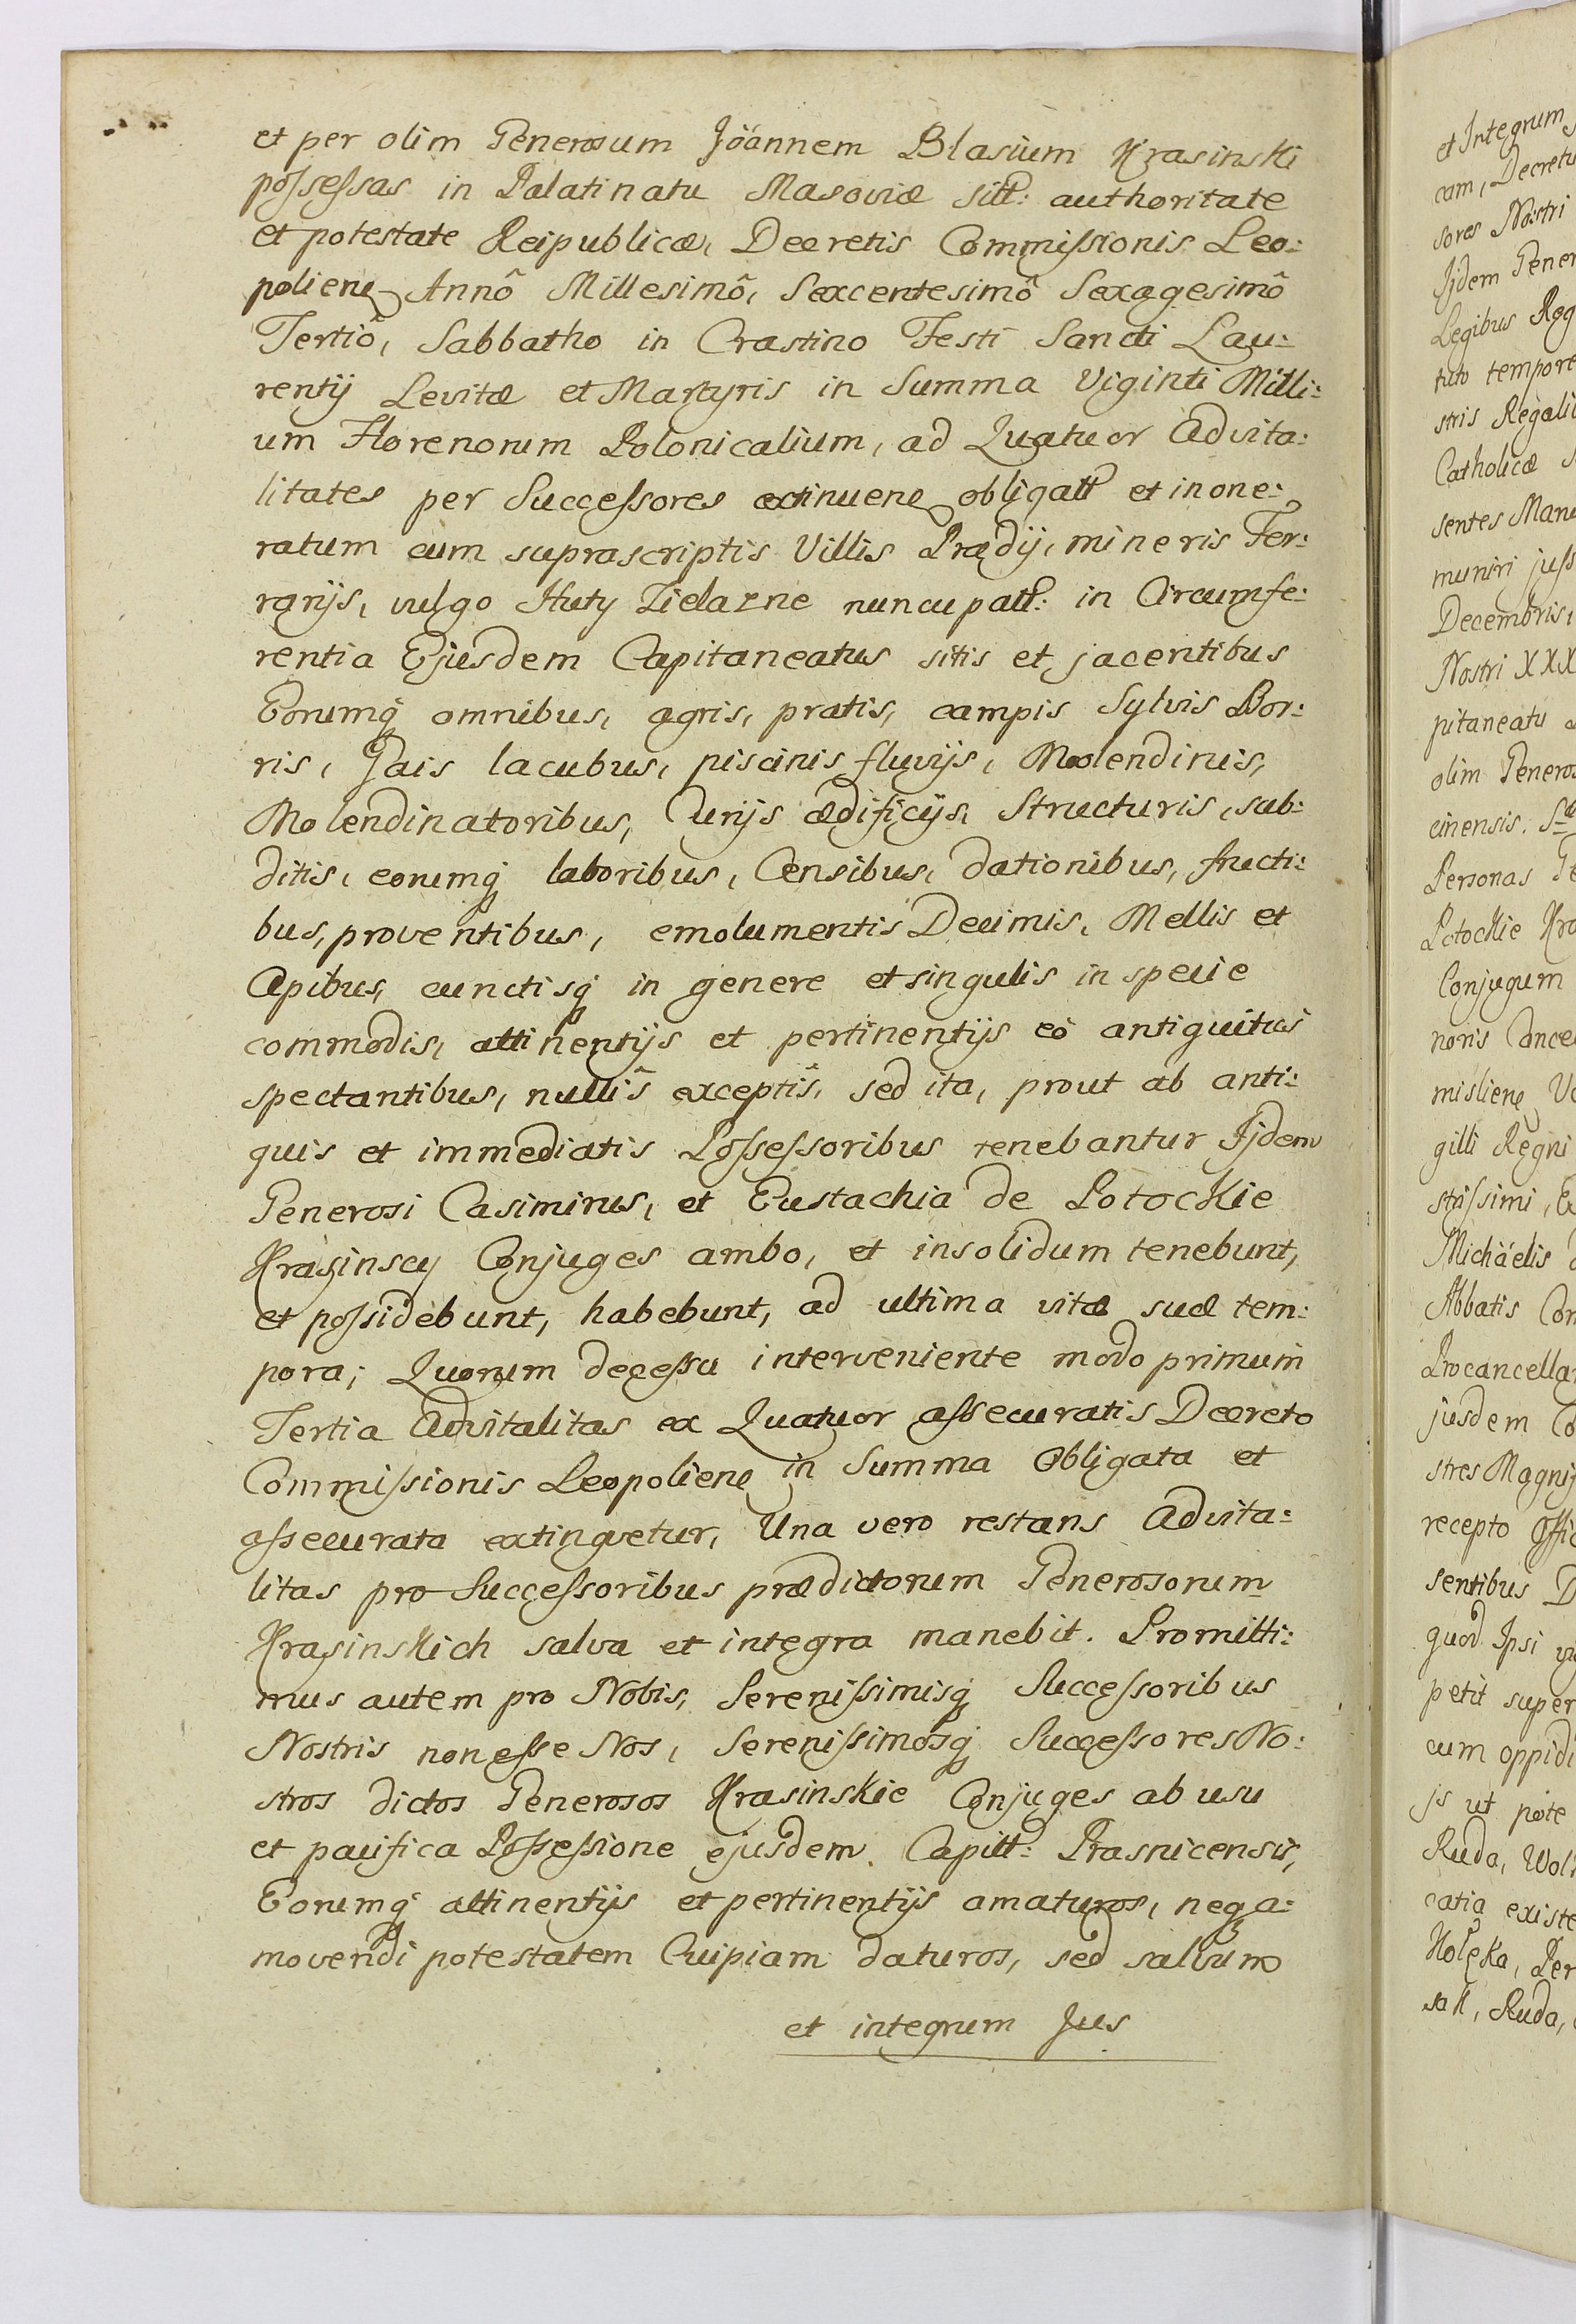 et per olim Generosum Joánnem Blasium Krasinski
possessas in Palatinatu Masoviæ sitt: authoritate
et potestate Reipublicæ, Decretis Commissionis Leo:
polien Annô Millesimô, Sexcentesimô Sexagesimô
Tertiô, Sabbatho in Crastino Festi Sancti Lau:
rentij Levitæ et Martyris in Summa Viginti Milli:
um Florenorum Polonicalium, ad Quatuor Advita:
litates per Successores extinuen obligatt et inone:
ratum cum suprascriptis Villis Prædij, mineris Fer:
rarijs, vulgo Huty Zielazne nuncupatt: in Circumfe:
rentia Ejusdem Capitaneatus sitis et jacentibus
Eorumq omnibus, agris, pratis, campis Sylvis Bor:
ris, Gais lacubus, piscinis fluvijs, Moolendinis,
Molendinatoribus, Curijs ædificijs, Structuris, sub:
ditis, eorumq laboribus, Censibus, dationibus, fructi:
bus, proventibus, emolumentis Decimis, Mellis et
Apibus, cunctisq in genere et singulis in specie
commodis, attinentijs et pertinentijs eò antiquitus
spectantibus, nullis exceptis, sed ita, prout ab anti:
quis et immediatis Possessoribus tenebantur Ijdem
Generosi Casimirus, et Eustachia de Potockie
Krasinscy Conjuges ambo, et insolidum tenebunt,
et possidebunt, habebunt, ad ultima vitæ suæ tem:
pora; Quorum decessu interveniente modo primum
Tertia Advitalitas ex Quatuor assecuratis Decreto
Commissionis Leopolien in Summa Obligata et
assecurata extinguetur, Una vero restans Advita:
litas pro Successoribus prædictorum Generosorum
Krasinskich salva et integra manebit. Promitti:
mus autem pro Nobis, Serenissimisq Successoribus
Nostris non esse Nos, Serenissimosq Successores No:
stros dictos Generosos Krasinskie Conjuges ab usu
et pacifica Possessione ejusdem Capitt: Prasnicensis,
Eorumq attinentijs et pertinentijs amaturos, nega:
movendi potestatem Cuipiam daturos, sed salvum
et integrum Jus
et Integrum
cam, Decretu
sores Nostri
Ijdem Gener
Legibus Reg
tuto tempore
stris Regali
Catholicæ
sentes Manu
muniri juss
Decembris,
Nostri XXX
pitaneatu
olim Generos
cinensis.
Personas Ge
Potockie Kra
Conjugum
noris Cance
mislien
gilli Regni
strissimi,
Micháelis
Abbatis Com
Procancellar
jusdem Co
stres Magnif
recepto Offic
sentibus
quod Ipsi
petit super
cum oppidi
js ut pote
Ruda, Wol
catia existe
Hołęka, Per
sak, Ruda,